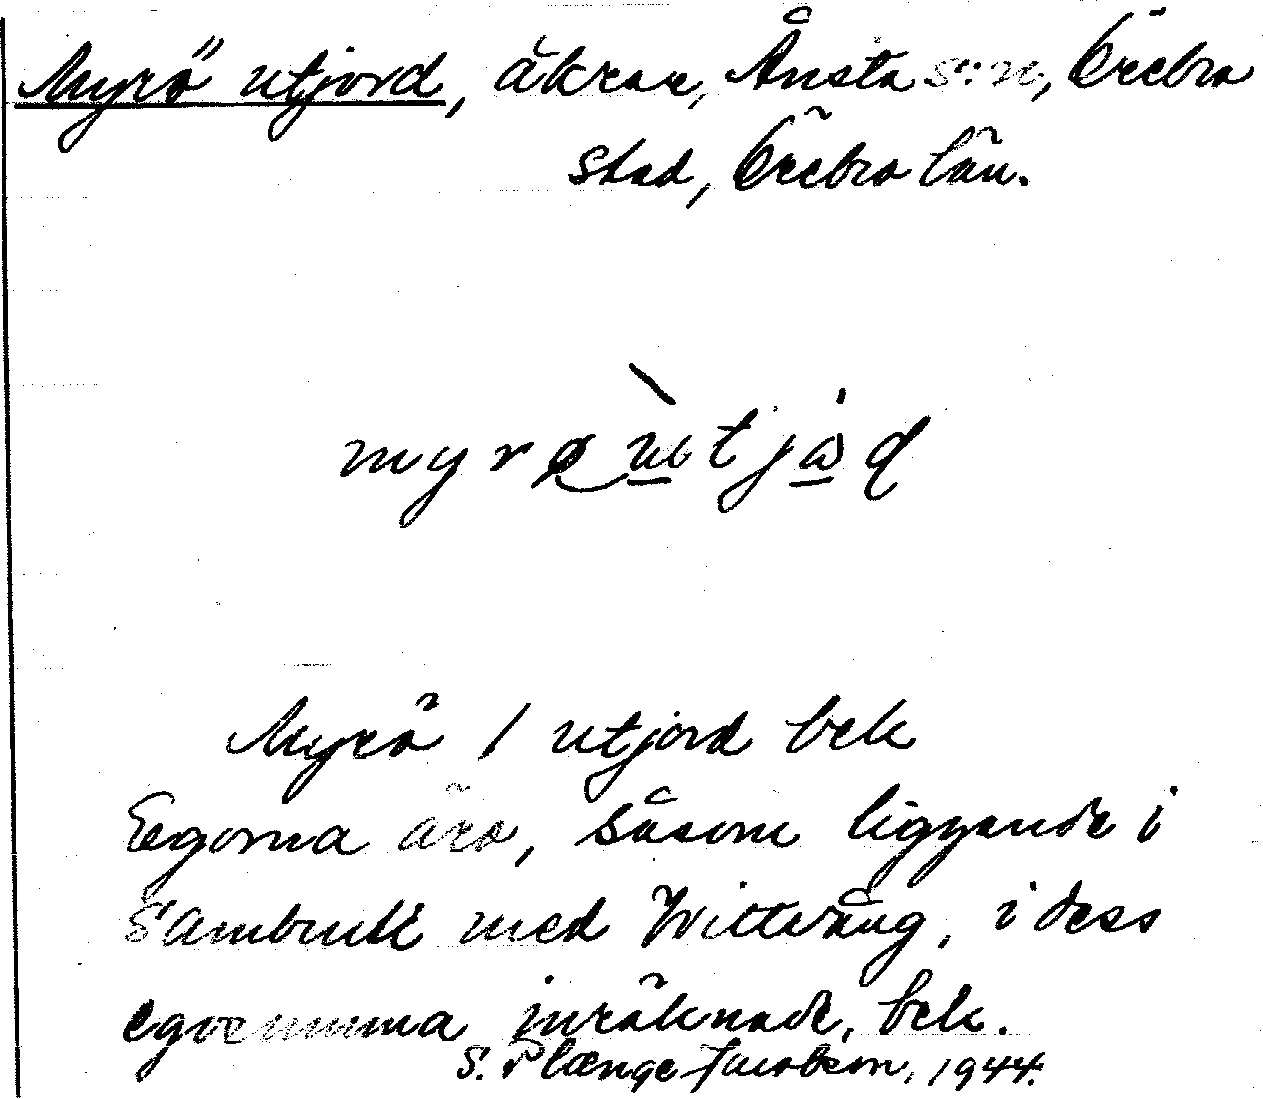 Myrö utjord, åkrar, Ånsta s:n, Örebro
stad, Örebro län.
myrø‿ùtjåḍ
Myrö / utjord bek
Egorna äro, såsom liggande i
Sambruk med Hvitteräng, i dess
egoesumma inräknade, bek.
S. Plænge Jacobson, 1944.